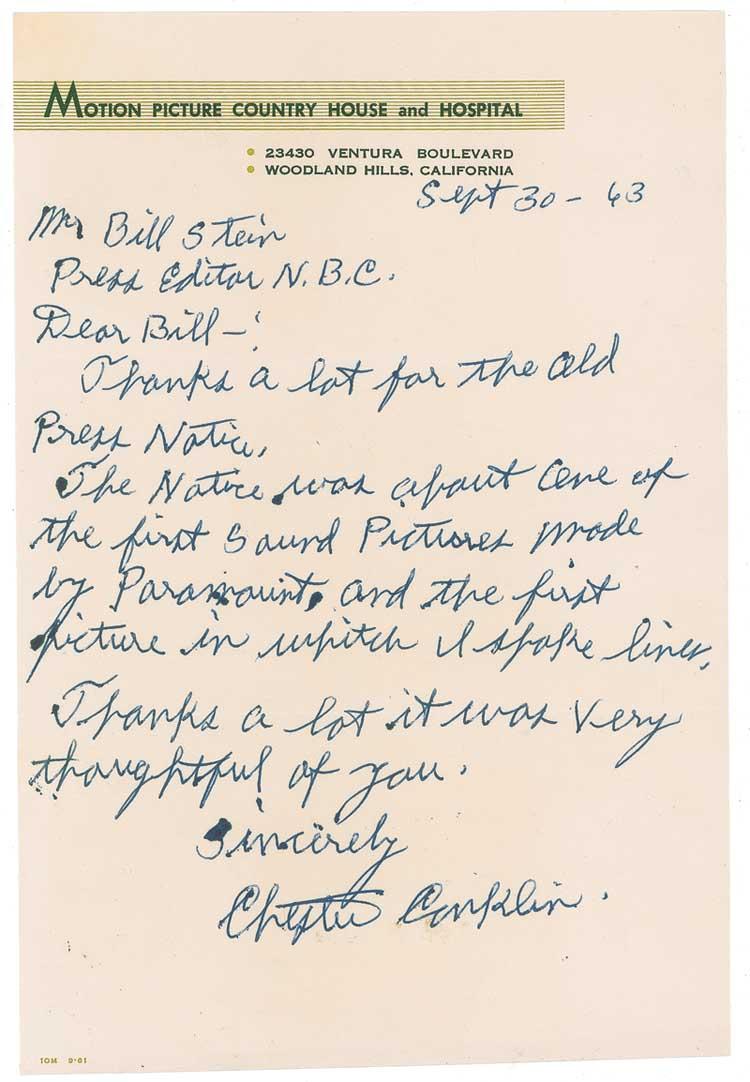 MOTION PICTURE COUNTRY HOUSE and HOSPITAL
23430 VENTURA BOULEVARD
WOODLAND HILLS, CALIFORNIA
Sept 30 - 63
Mr Bill Stein
Press Editor N.B.C.
Dear Bill -:
Thanks a lot for the old
Press Notice.
The Notice was about one of
the first Sound Pictures made
by Paramount, and the first
picture in whitch I spoke lines.
Thanks a lot it was very
thoughtful of you.
Sincirely
Chester Conklin.
10M 9-61